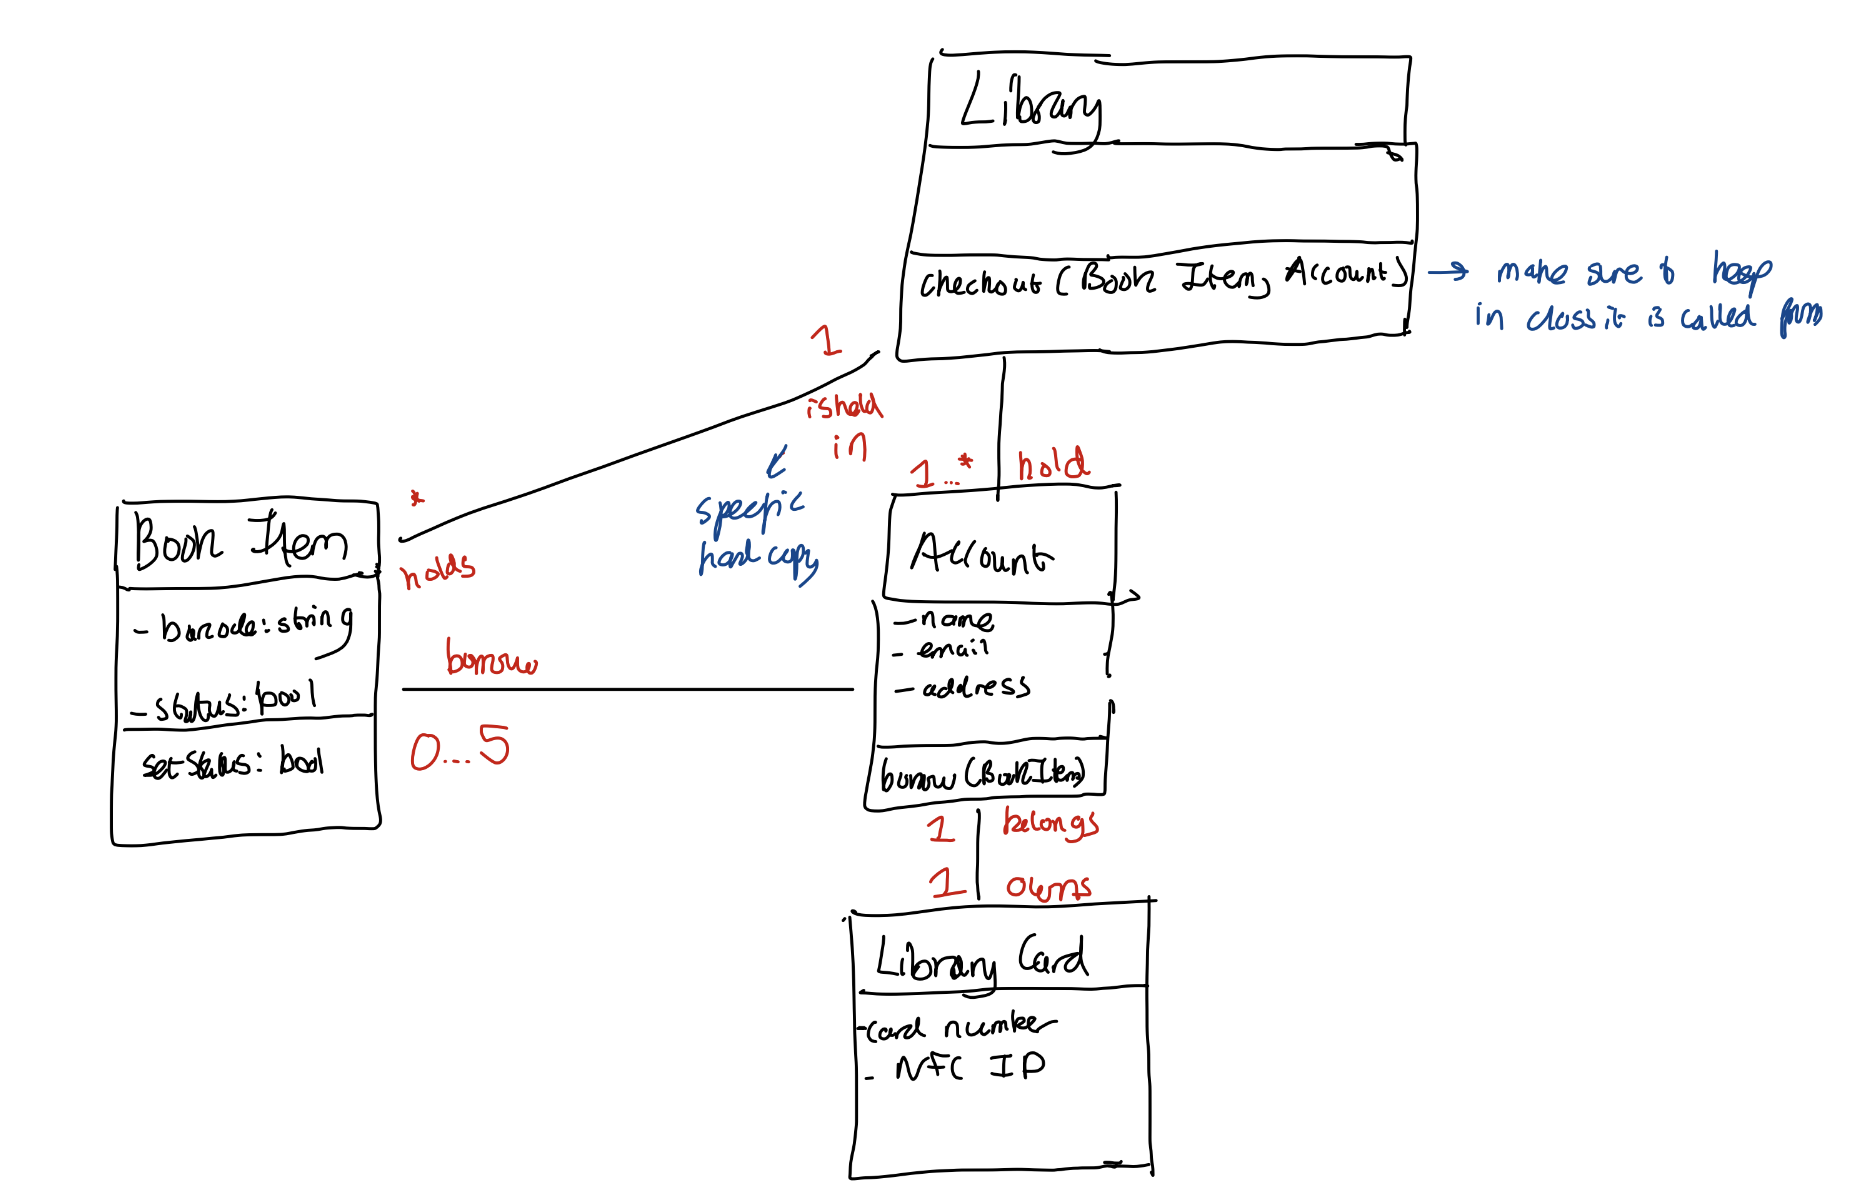 Library
checkout (Book Item, Account)
→ make sure to keep
in class it is called from
1
is held
in
specific
hard copy
1...*
hold
*
holds
Book Item
- barcode: string
- status: bool
setStatus: bool
borrow
0...5
Account
- name
- email
- address
borrow (BookItem)
1 belongs
1 owns
Library Card
- card number
- NFC ID